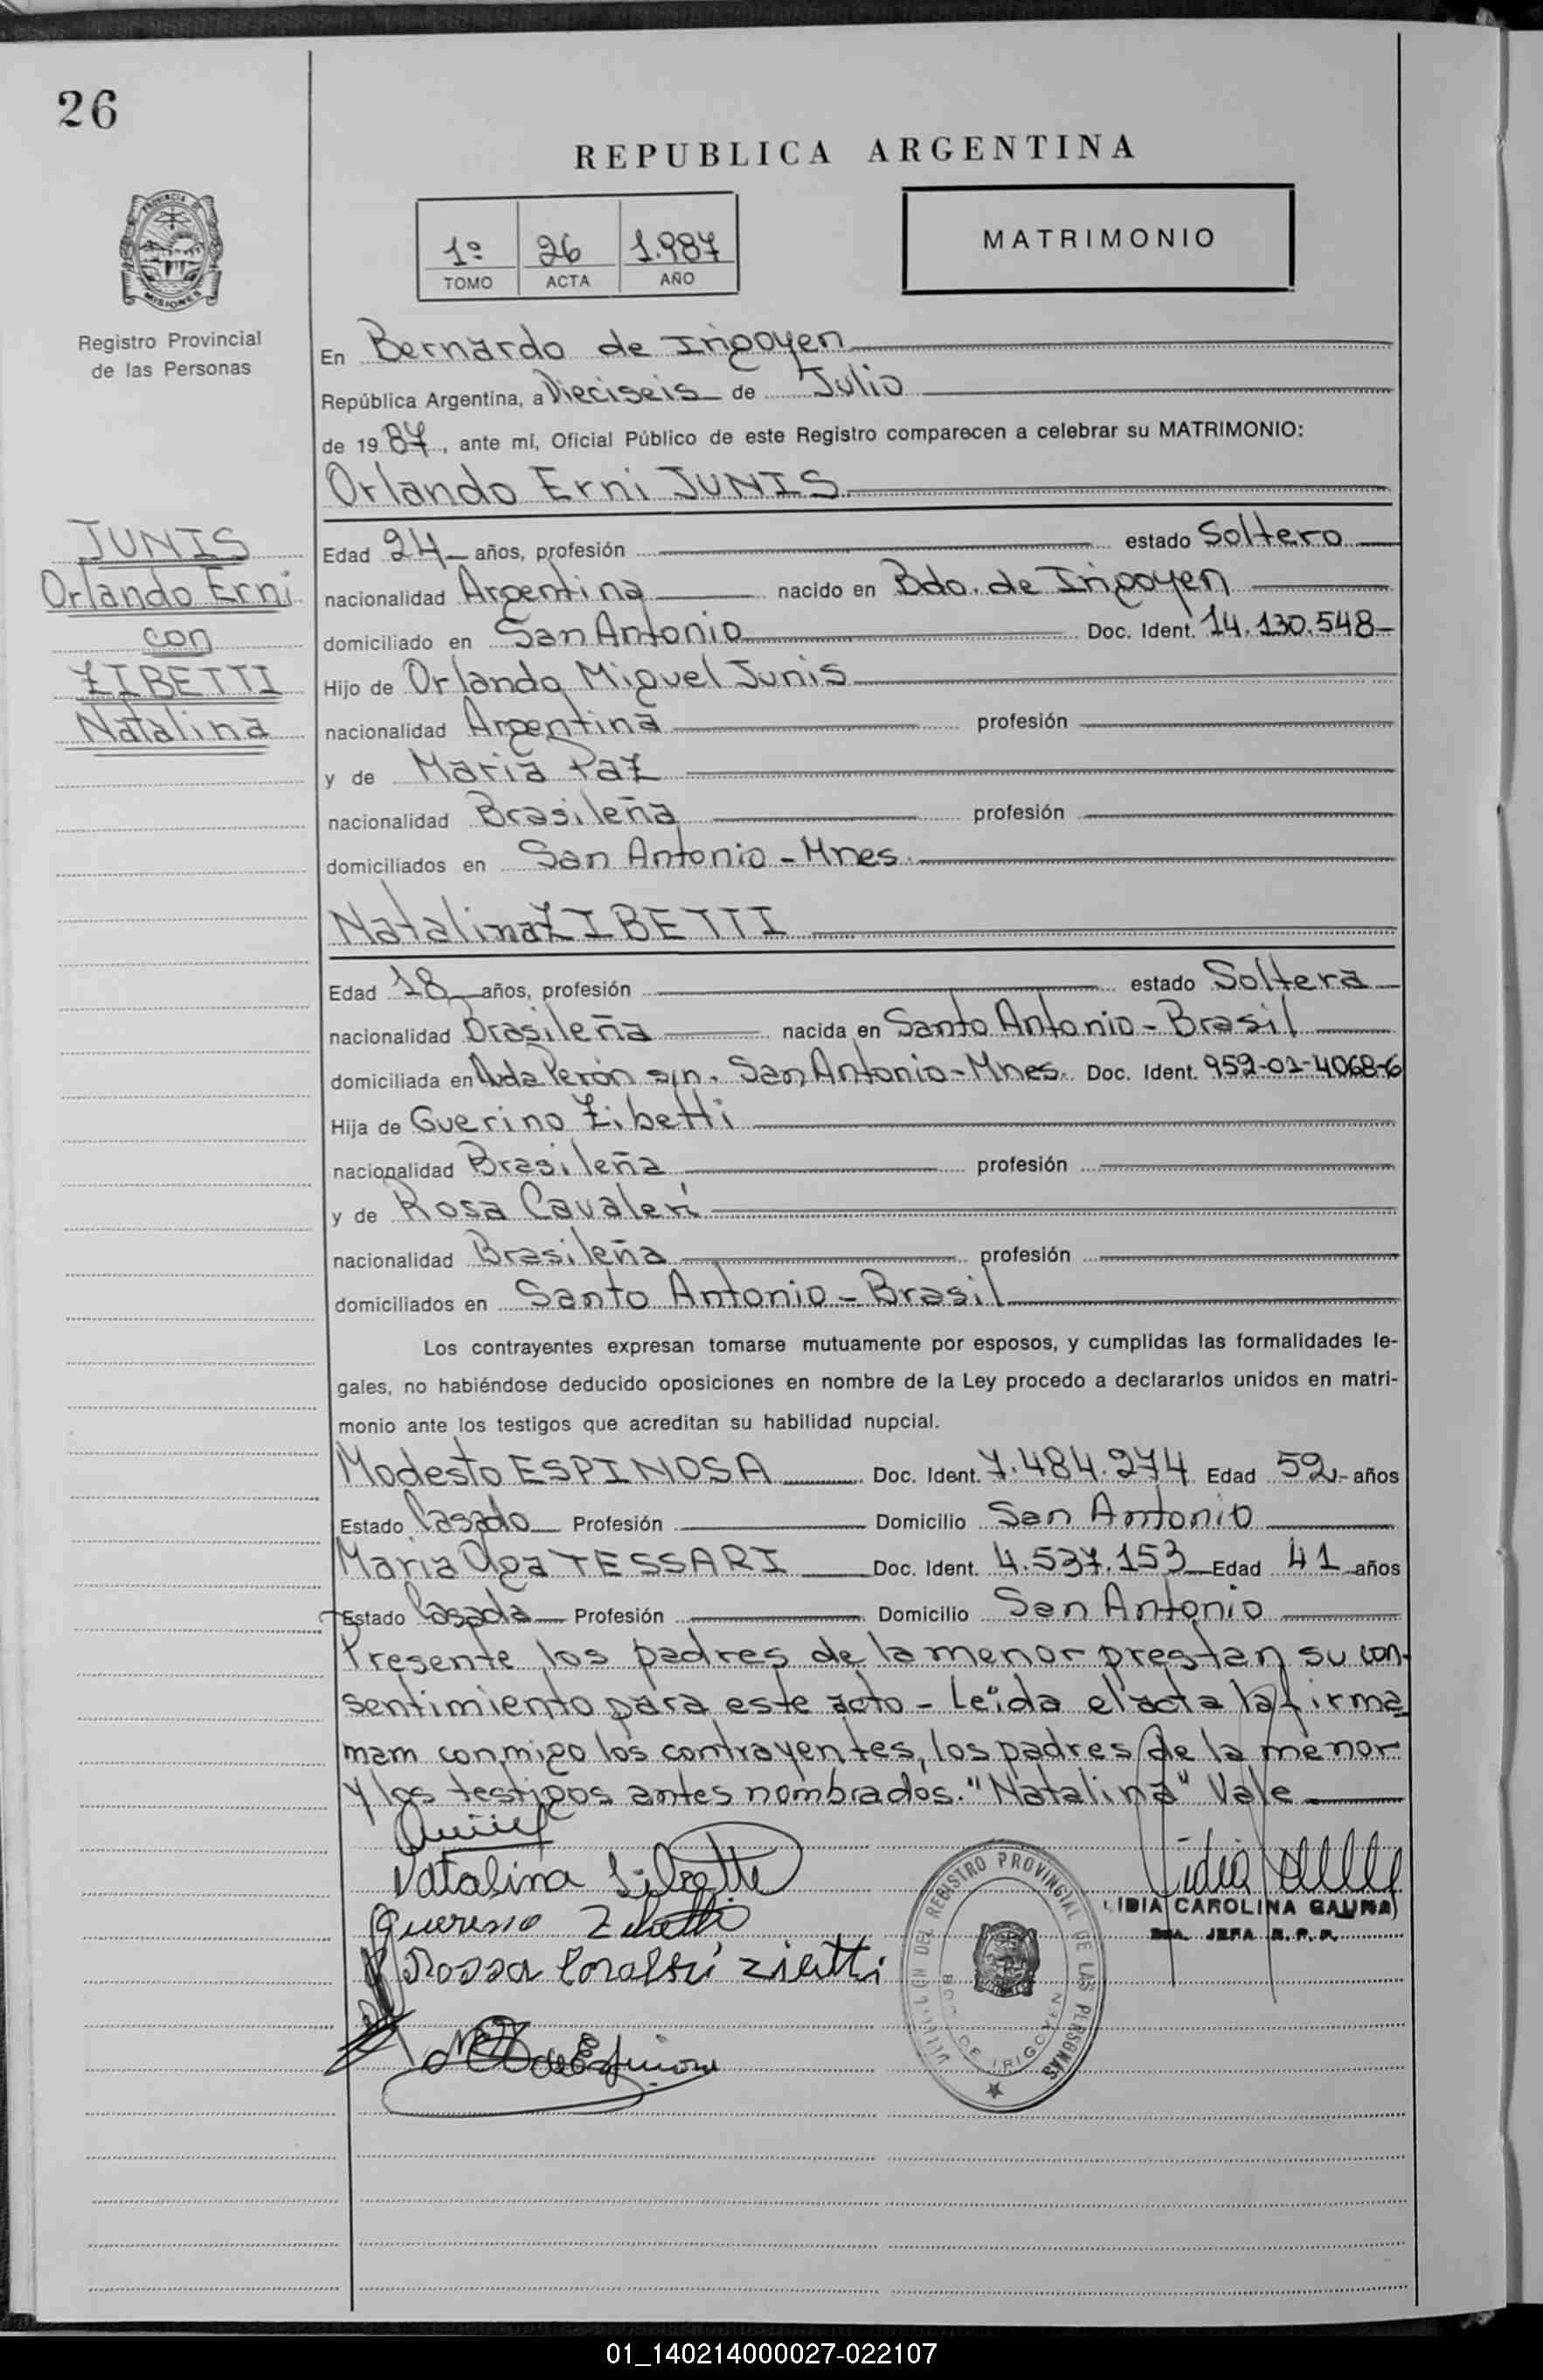 26
REPUBLICA ARGENTINA
PROVINCIA DE
MISIONES
Registro Provincial
de las Personas
1º 26 1.987
TOMO ACTA AÑO
MATRIMONIO
En Bernardo de Irigoyen
República Argentina, a Dieciseis de Julio
de 19 87, ante mí, Oficial Público de este Registro comparecen a celebrar su MATRIMONIO:
Orlando Erni JUNIS
JUNIS
Orlando Erni
con
ZIBETTI
Natalina
Edad 24 años, profesión estado Soltero
nacionalidad Argentina nacido en Bdo. de Irigoyen
domiciliado en San Antonio Doc. Ident. 14.130.548-
Hijo de Orlando Miguel Junis
nacionalidad Argentina profesión
y de Maria Paz
nacionalidad Brasileña profesión
domiciliados en San Antonio - Mnes.
Natalina ZIBETTI
Edad 18 años, profesión estado Soltera
nacionalidad Brasileña nacida en Santo Antonio - Brasil
domiciliada en Avda Perón s/n. San Antonio - Mnes. Doc. Ident. 959-01-4068-6
Hija de Guerino Zibetti
nacionalidad Brasileña profesión
y de Rosa Cavaleri
nacionalidad Brasileña profesión
domiciliados en Santo Antonio - Brasil
Los contrayentes expresan tomarse mutuamente por esposos, y cumplidas las formalidades le-
gales, no habiéndose deducido oposiciones en nombre de la Ley procedo a declararlos unidos en matri-
monio ante los testigos que acreditan su habilidad nupcial.
Modesto ESPINOSA Doc. Ident. 7.484.274 Edad 52 - años
Estado Casado Profesión Domicilio San Antonio
Maria Olga TESSARI Doc. Ident. 4.537.153 Edad 41 años
Estado Casada Profesión Domicilio San Antonio
Presente los padres de la menor prestan su con-
sentimiento para este acto - Leida el acta la firma
mam conmigo los contrayentes, los padres de la menor
y los testigos antes nombrados. "Natalina" Vale
Natalina Zibetti
Guerino Zibetti
LIDIA CAROLINA GAUNA
JEFA R. P. P.
DEL REGISTRO PROVINCIAL DE LAS PERSONAS
BDO. DE IRIGOYEN
01_140214000027-022107